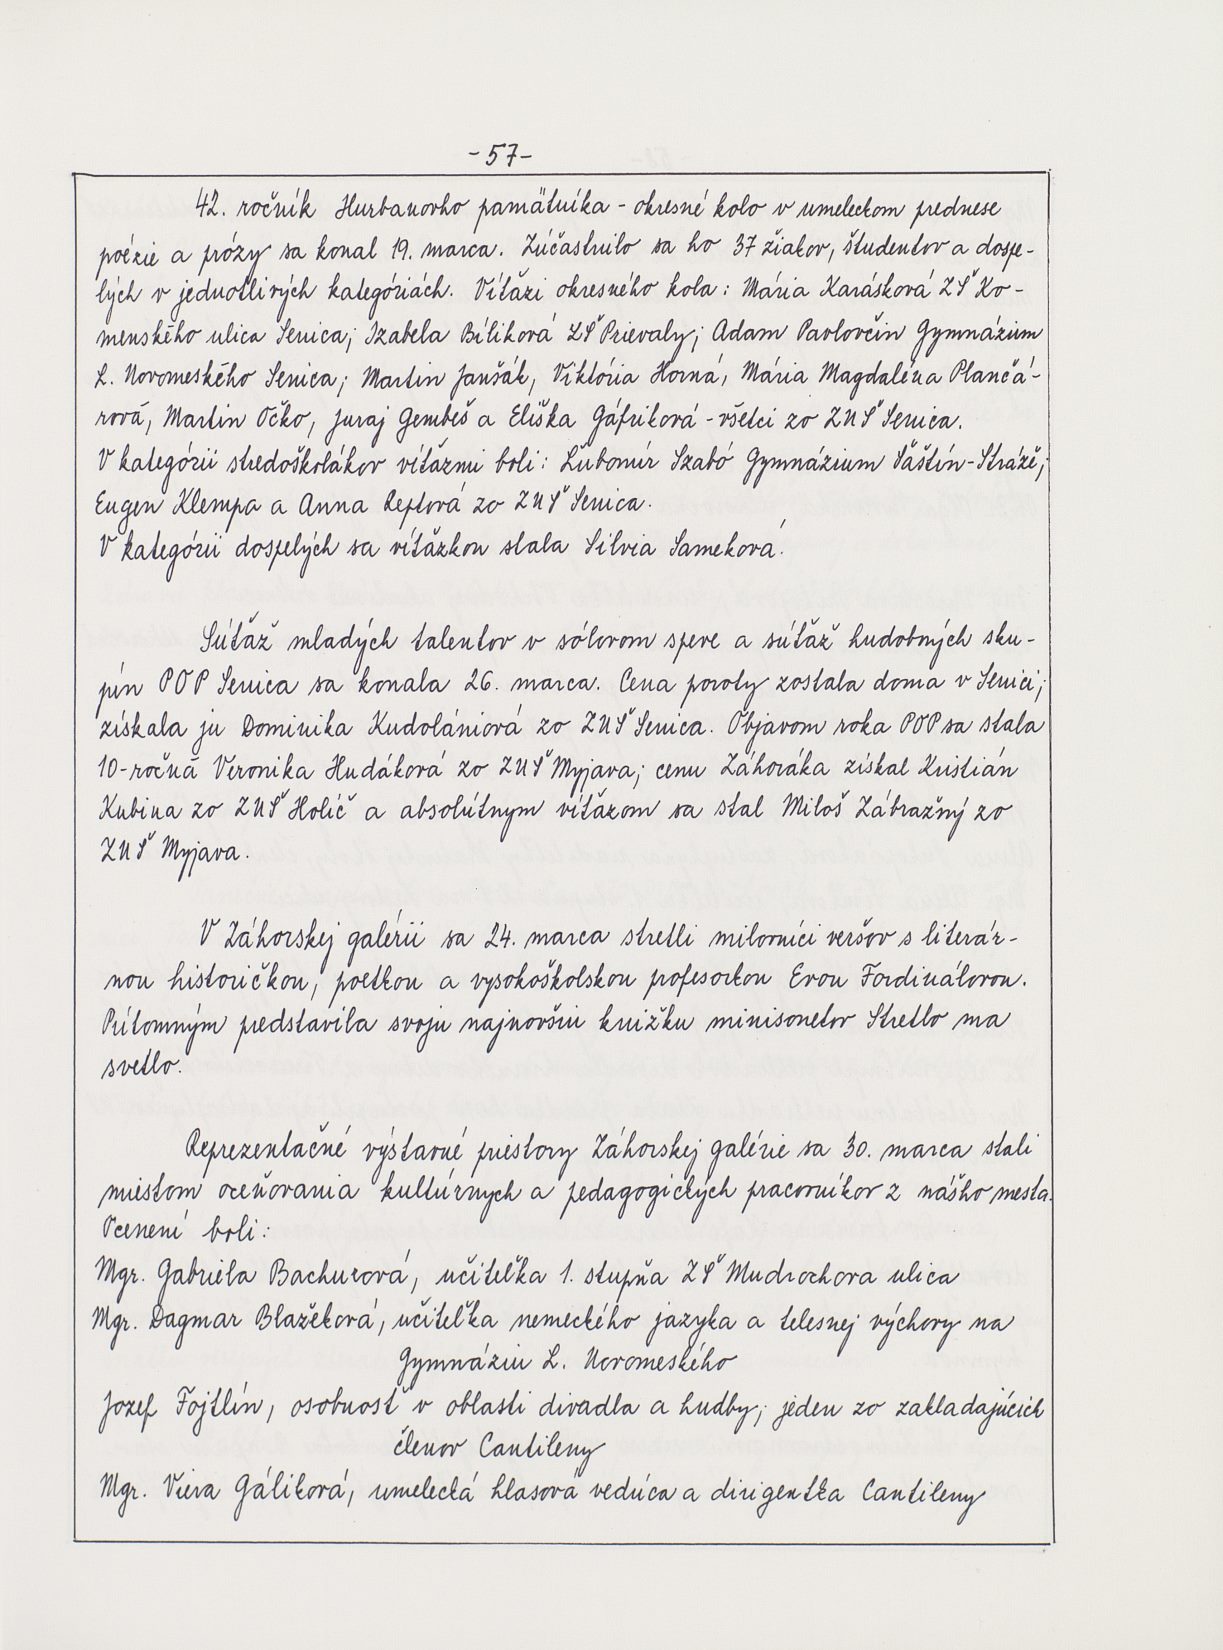 -57-
42. ročník Hurbanovho pamätníka - okresné kolo v umeleckom prednese
poézie a prózy sa konal 19. marca. Zúčastnilo sa ho 37 žiakov, študentov a dospe-
lých v jednotlivých kategóriách. Víťazi okresného kola: Mária Karásková ZŠ Ko-
menského ulica Senica; Izabela Bíliková ZŠ Prievaly; Adam Pavlovčin Gymnázium
L. Novomeského Senica; Martin Janšák, Viktória Horná, Mária Magdaléna Plančá-
rová, Martin Očko, Juraj Gembeš a Eliška Gáfriková - všetci zo ZUŠ Senica.
V kategórii stredoškolákov víťazmi boli: Ľubomír Szabó Gymnázium Šaštín-Stráže;
Eugen Klempa a Anna Reptová zo ZUŠ Senica.
V kategórii dospelých sa víťazkou stala Silvia Sameková.
Súťaž mladých talentov v sólovom speve a súťaž hudobných sku-
pín POP Senica sa konala 26. marca. Cena poroty zostala doma v Senici;
získala ju Dominika Kudolániová zo ZUŠ Senica. Objavom roka POP sa stala
10-ročná Veronika Hudáková zo ZUŠ Myjava; cenu Záhoráka získal Kristián
Kubina zo ZUŠ Holíč a absolútnym víťazom sa stal Miloš Zábražný zo
ZUŠ Myjava.
V Záhorskej galérii sa 24. marca stretli milovníci veršov s literár-
nou historičkou, poetkou a vysokoškolskou profesorkou Evou Fordinálovou.
Prítomným predstavila svoju najnovšiu knižku minisonetov Stretlo ma
svetlo.
Reprezentačné výstavné priestory Záhorskej galérie sa 30. marca stali
miestom oceňovania kultúrnych a pedagogických pracovníkov z nášho mesta.
Ocenení boli:
Mgr. Gabriela Bachurová, učiteľka 1. stupňa ZŠ Mudrochova ulica
Mgr. Dagmar Blažeková, učiteľka nemeckého jazyka a telesnej výchovy na
Gymnáziu L. Novomeského
Jozef Fojtlín, osobnosť v oblasti divadla a hudby; jeden zo zakladajúcich
členov Cantileny
Mgr. Viera Gáliková, umelecká hlasová vedúca a dirigentka Cantileny